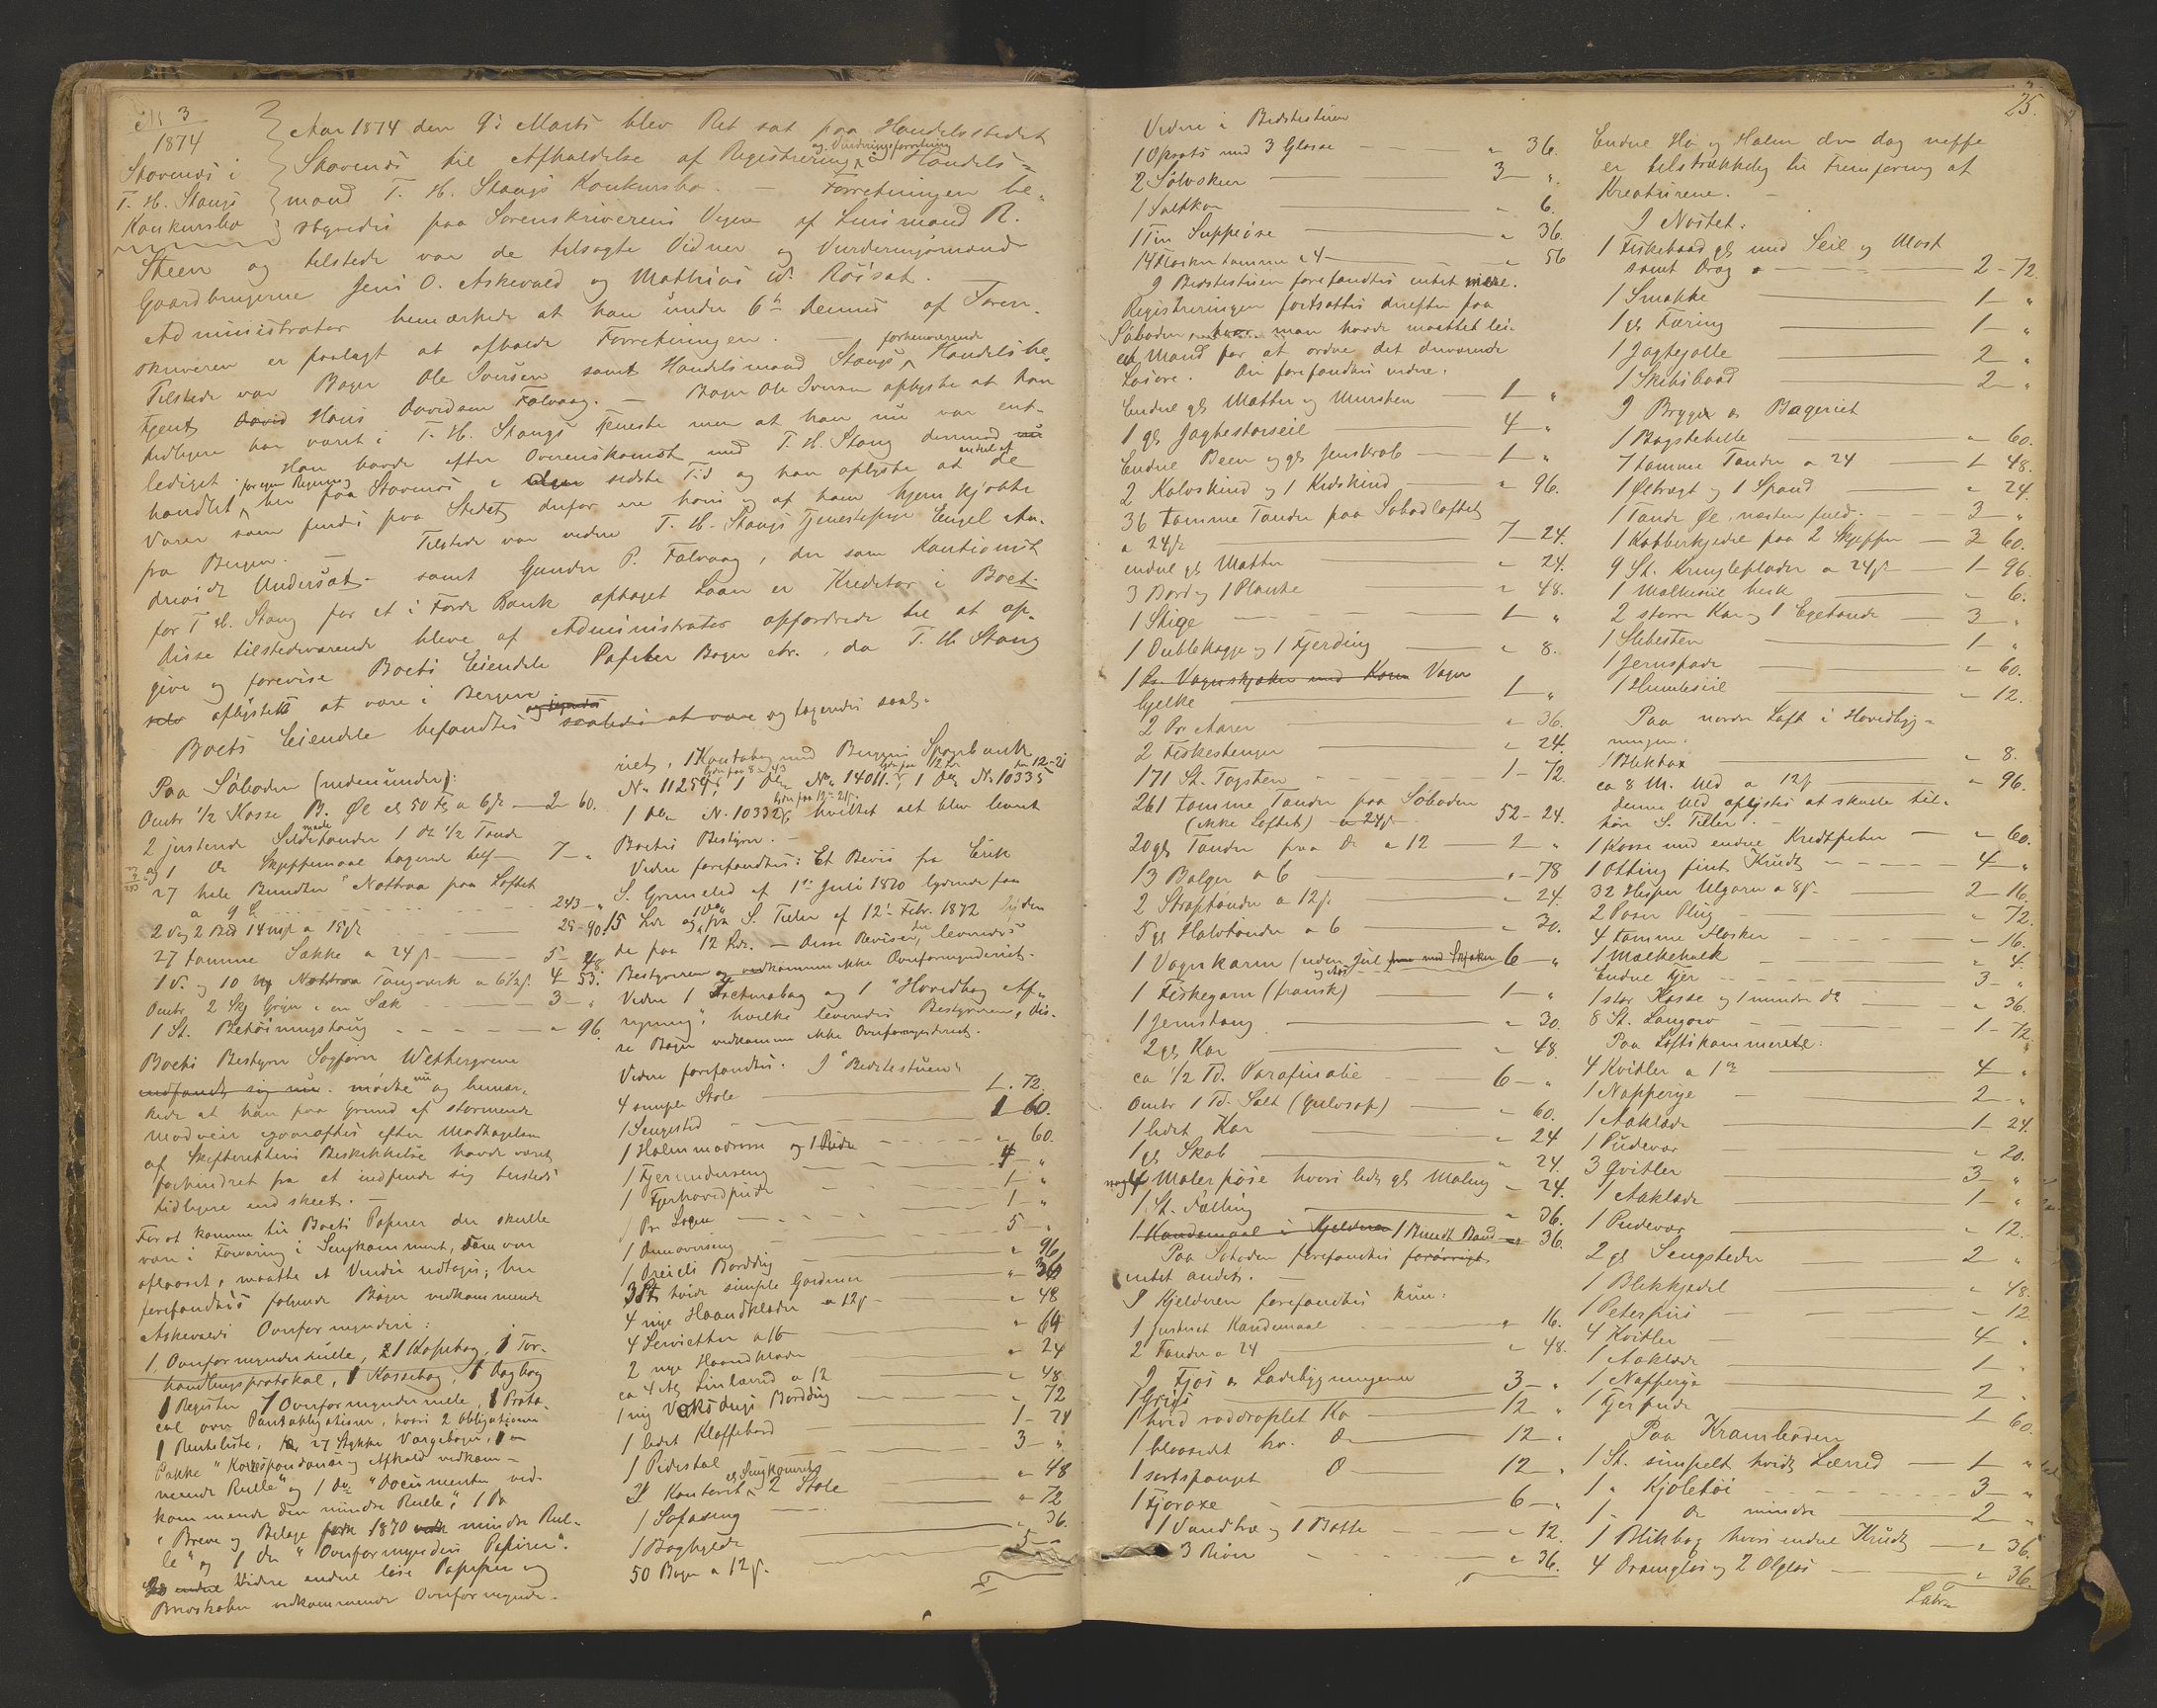 9/3
1874
Stavenes i
T. H. Stangs
Konkursbo
Aar 1874 den 9de Marts blev Ret sat paa Handelsstedet
Stavenes til Afholdelse af Registrering og Vurderingsforretning i Handels=
mand T. H. Stangs Konkursbo. — Forretningen be-
styredes paa Sorenskriverens Vegne af Lensmand R.
Steen og tilstede var de tilsagte Vidner og Vurderingsmænd
Gaardbrugerne Jens O. Askevold og Mathias W. Røisæt.
Administrator bemærkede at han under 6te dennes af Soren-
skriveren er paalagt at afholde Forretningen. —
Tilstede var Bager Ole Iversen samt Handelsmand Stangs forhenværende Handelsbe-
tjent David Hans Davidsen Falvaag. — Bager Ole Iversen oplyste at han
tidligere har været i T. H. Stangs Tjeneste men at han nu var ent-
lediget. Han havde efter Overenskomst med T. H. Stang dermed nu
handlet for egen Regning her paa Stavenes i den sidste Tid og han oplyste at endel af de
Varer som findes paa Stedet derfor ere hans og af ham hjemkjøbte
fra Bergen. — Tilstede var videre T. H. Stangs Tjenestepige Engel An-
drea dr. Undersæt — samt Gunder P. Falvaag, der som Kautionist
for T. H. Stang for et i Førde Bank optaget Laan er Kreditor i Boet.
Disse tilstedeværende bleve af Administrator opfordrede til at op-
give og forevise Boets Eiendele Papirer Bøger etc., da T. H. Stang
selv oplystes at være i Bergen
Boets Eiendele befandtes og toges saaledes at være og tageredes saal.
Paa Søboden (nedenunder):
Omtr ½ Kasse B. Øl ell 50 Fl a 6 ß — 2 – 60.
2 justerede Sildetønder 1 do ½ Tønde
og 1 do Skjeppemaal tagerede helf — 7 – "
27 hele Bundter "Nottraa paa Loftet
a 9 ß — 243 – "
2 V og 2 Bd 14 mp a 15 ß — 25 – 90.
27 tomme Sække a 24 ß — 5 – 48
1 V. og 10 mp Nottraa Taugværk a 6½ ß. 4 – 53.
Omtr 2 Skj Gryn i en Sæk — 3 – "
1 St. Betøiningstaug — " 96.
Boets Bestyrer Sagfører Wettergreen
indfandt sig nu. mødte nu og bemær-
kede at han paa Grund af stormende
Modveir ogsaa efter Modtagelsen
af Skifterettens Beskikkelse havde været
forhindret fra at indfinde sig herstedes
tidligere end skeet. —
For at komme til Boets Papirer der skulle
være i Forvaring i Sengkammeret, som var
aflaaset, maatte et Vindu udtages; her
forefandtes følgende Bøger vedkommende
Askevolds Overformynderi:
1, Overformynderrulle, 1 Kopibog, 1 For-
handlingsprotokol, 1 Kassebog, 1 Dagbog
1 Register 1 Overformynderrulle, 1 Proto-
col over Panteobligationer, hvori 2 Obligationer
1 Renteliste, 27 Stykke Vergebøger, 1 en
Pakke "Korrespondance og Afkald vedkom-
mende Rulle" og 1 do "Documenter ved-
kommende den mindre Rulle", 1 do
"Breve og Bilage for 1870 mindre Rul-
le" og 1 do "Overformynderi Papirer".
Videre endel løse Papirer og
Brevskaber vedkommende Overformynde-
riet, 1 Kontrabog med Bergens Sparebank
No 11254, 1 do No 14011, 1 do No 10335
1 do No 10332, hvilket alt blev leveret
Boets Bestyrer. —
Videre forefandtes: Et Bevis fra Erik
S. Grimelid af 1ste Juli 1870 lydende paa
15 Spd og fra S. Tiller af 12te Febr. 1872 lyden
de paa 12 Spd. — Disse Beviser leveredes
Bestyreren og vedkommer ikke Overformynderiet.
Videre 1 Facturabog og 1 "Hovedbog Af-
regning", hvilke leveredes Bestyreren, dis-
se Bøger vedkommer ikke Overformynderiet.
Videre forefandtes: I "Bedstestuen"
4 simple Stole — 1 – 72.
1 Sengested — 1 60.
1 Halmmadrasse og 1 Pude — " 60.
1 Fjerunderseng — 4 – "
1 Fjerhovedpude — 1 – "
1 Pr Lagen — 1 – "
1 Dunoverseng — 5 – "
1 Dreiels Borddug — " 96
3 St hvide simple Gardiner — " 36
4 nye Haandklæder a 12 ß — " 48
4 Servietter a 16 — " 64
2 nye Haandklæder — " 24
ca 4 Al Linlærred a 12 — " 48
1 ny Voksdugs Borddug — " 72
1 ledet Klappebord — 1 – 24
1 Pidestal — 3 – "
I Kontoret og Sengkammeret 2 Stole — " 48
1 Sofaseng — " 72
1 Boghylde — " 36.
50 Bøger a 12 ß. — 5 – "
25.
Videre i Bedstestuen
1 Opsats med 3 Glasse — " 36.
2 Sølvskeer — 3 – "
1 Saltkar — " 6.
1 Tin Suppeøse — " 36.
14 Flasker tomme a 4 — " 56
I Bedstestuen forefandtes intet mere.
Registreringen fortsattes derefter paa
Søboden hvor man havde maattet lei-
et Mand for at ordne det derværende
Løsøre. Der forefandtes videre.
Endel gl Matter og Mursten — 1 – "
1 gl Jagtestorseil — 4 – "
Endel Been og gl Jenskrab — 1 – "
2 Kalvskind og 1 Kidskind — " 96.
36 tomme Tønder paa Søbodloftet
a 24 ß — 7 – 24.
endel gl Matter — " 24.
3 Bord og 1 Planke — " 48.
1 Stige — 1 – "
1 Dublekagge og 1 Fjerding — " 8.
1 Vogn
hjelke — 1 – "
2 Pr Aarer — " 36.
2 Fiskestenger — " 24.
171 St. Tagsten — 1 – 72.
261 tomme Tønder paa Søboden
(ikke Loftet) a 24 ß — 52 – 24.
20 gl Tønder paa do a 12 — 2 – "
13 Balger a 6 — " 78
2 Straptønder a 12 ß. — " 24.
5 gl Halvtønder a 6 — " 30.
1 Vognkarm (uden Jul — 6 – "
1 Fiskegarn (fransk) — 1 – "
1 Jernstang — " 30.
2 gl Kar — " 48.
ca ½ Td. Parafinolie — 6 – "
Omtr 1 Td. Salt (gulvsop) — " 60.
1 lidet Kar — " 24
1 gl Skab — " 24.
nogle Malerpøse hvori lidt gl Maling — " 24.
1 St. Fælling — " 36.
1 Kandemaal i Kjelderen 1 Bundt Baand — " 36.
Paa Søboden forefandtes forøvrigt
intet andet. —
I Kjelderen forefandtes kun:
1 justeret Kandemaal — " 16.
2 Tønder a 24 — " 48.
I Fjøs og Ladebygningerne
1 Griis — 3 – "
1 hvid røddroplet Ko — 12 – "
1 blaasidet kv. do — 12 – "
1 sortspanget do — 12 – "
1 Fjoraxe — 6 – "
1 Vandtræ og 1 Bøtte — " 12.
3 River — " 36.
Endel Hø og Halm der dog neppe
er tilstrækkelig til Fremforing af
Kreaturene. —
I Nøstet.
1 Fiskebaad gl med Seil og Mast
samt Drag — 2 – 72.
1 Smakke — 1 – "
1 gl Færing — 1 – "
1 Jagtejolle — 2 – "
1 Skibsbaad — 2 – "
I Brygge og Bageriet
1 Bagstehelle — " 60.
7 tomme Tønder a 24 — 1 – 48.
1 Ølvægt og 1 Spand — " 24.
1 Tønde Øl, næsten fuld. — 3 – "
1 Kobberkjedel paa 2 Skjepper — 3 60.
9 St. Kringleplader a 24 ß — 1 – 96.
1 Malkesiil besk — " 6.
2 større Kar og 1 Egetønde — 3 – "
1 Slibesten — 1 – "
1 Jernspade — " 60.
1 Humlesiil — " 12.
Paa nordre Loft i Hovedbyg-
ningen.
1 Blikbøx — " 8.
ca 8 M. Uld a 12 ß — " 96.
denne Uld oplystes at skulle til-
høre S. Tiller. —
1 Kasse med endel Kridtpiber — " 60.
1 Otting fint Krudt — 4 – "
32 Hesper Ulgarn a 8 ß. — 2 – 16.
2 Poser Plug — " 72.
4 tomme Flasker — " 16.
1 Mælkebunk — " 4.
Endel Fjer — 3 – "
1 stor Kasse og 1 mindre do — " 36.
8 St. Langorv — 1 – 72.
Paa Loftskammerset:
4 Kvitler a 1 ß — 4 – "
1 Napperye — 2 – "
1 Aaklæde — 1 – 24.
1 Pudevar — " 20.
3 Qvitler — 3 – "
1 Aaklæde — 1 – "
1 Pudevar — " 12.
2 gl Sengsteder — 2 – "
1 Blikkjedel — " 48.
1 Peterpus — " 12
4 Kvitler — 4 – "
1 Aaklæde — 1 – "
1 Napperye — 2 – "
1 Fjerpude — 1 60.
Paa Kramboden
1 St. simpelt hvidt Lærred — 1 – "
1 " Kjoletøi — 3 – "
1 " do mindre — 2 – "
1 Blikbøx hvori endel Krudt — " 36.
4 Dramglas og 2 Ølglas — " 36.
Latus